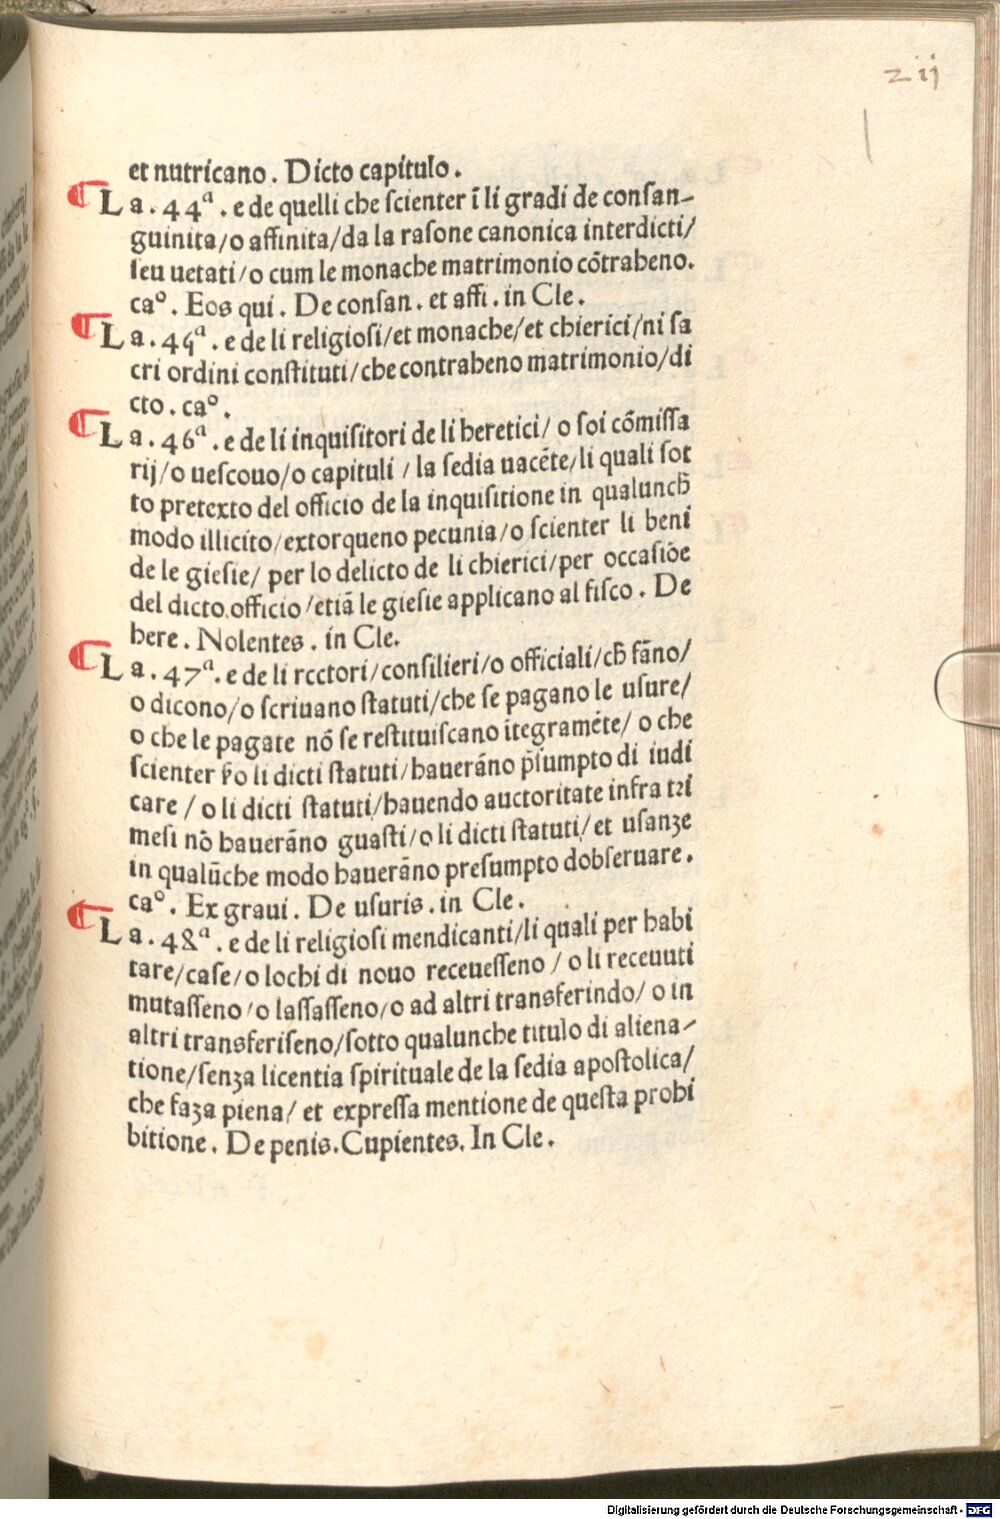 z ij
et nutricano. Dicto capitulo.
¶ La. 44ª. e de quelli che ſcienter ī li gradi de conſan-
guinita/o affinita/da la raſone canonica interdicti/
ſeu uetati/o cum le monache matrimonio cōtraheno.
caº. Eos qui. De conſan. et affi. in Cle.
¶ La. 45ª. e de li religioſi/et monache/et chierici/ni ſa
cri ordini conſtituti/che contraheno matrimonio/di
cto. caº.
¶ La. 46ª. e de li inquiſitori de li heretici/ o ſoi cōmiſſa
rij/o ueſcouo/o capituli / la ſedia uacēte/li quali ſot
to pretexto del officio de la inquiſitione in qualunch̄
modo illicito/extorqueno pecunia/o ſcienter li beni
de le gieſie/ per lo delicto de li chierici/per occaſiōe
del dicto officio/etiā le gieſie applicano al fiſco. De
here. Nolentes. in Cle.
¶ La. 47ª. e de li rectori/conſilieri/o officiali/ch̄ fāno/
o dicono/o ſcriuano ſtatuti/che ſe pagano le uſure/
o che le pagate nō ſe reſtituiſcano ītegramēte/ o che
ſcienter ẜo li dicti ſtatuti/haueráno p̄ſumpto di iudi
care / o li dicti ſtatuti/hauendo auctoritate infra tri
meſi nō hauerāno guaſti/o li dicti ſtatuti/ et uſanze
in qualūche modo hauerāno preſumpto dobſeruare.
caº. Ex graui. De uſuris. in Cle.
¶ La. 48ª. e de li religioſi mendicanti/li quali per habi
tare/caſe/o lochi di nouo receueſſeno / o li receuuti
mutaſſeno/o laſſaſſeno/o ad altri transferindo/ o in
altri transferiſeno/ſotto qualunche titulo di aliena-
tione/ſenza licentia ſpirituale de la ſedia apoſtolica/
che faza piena/ et expreſſa mentione de queſta prohi
bitione. De penis. Cupientes. In Cle.
Digitalisierung gefördert durch die Deutsche Forschungsgemeinschaft - DFG